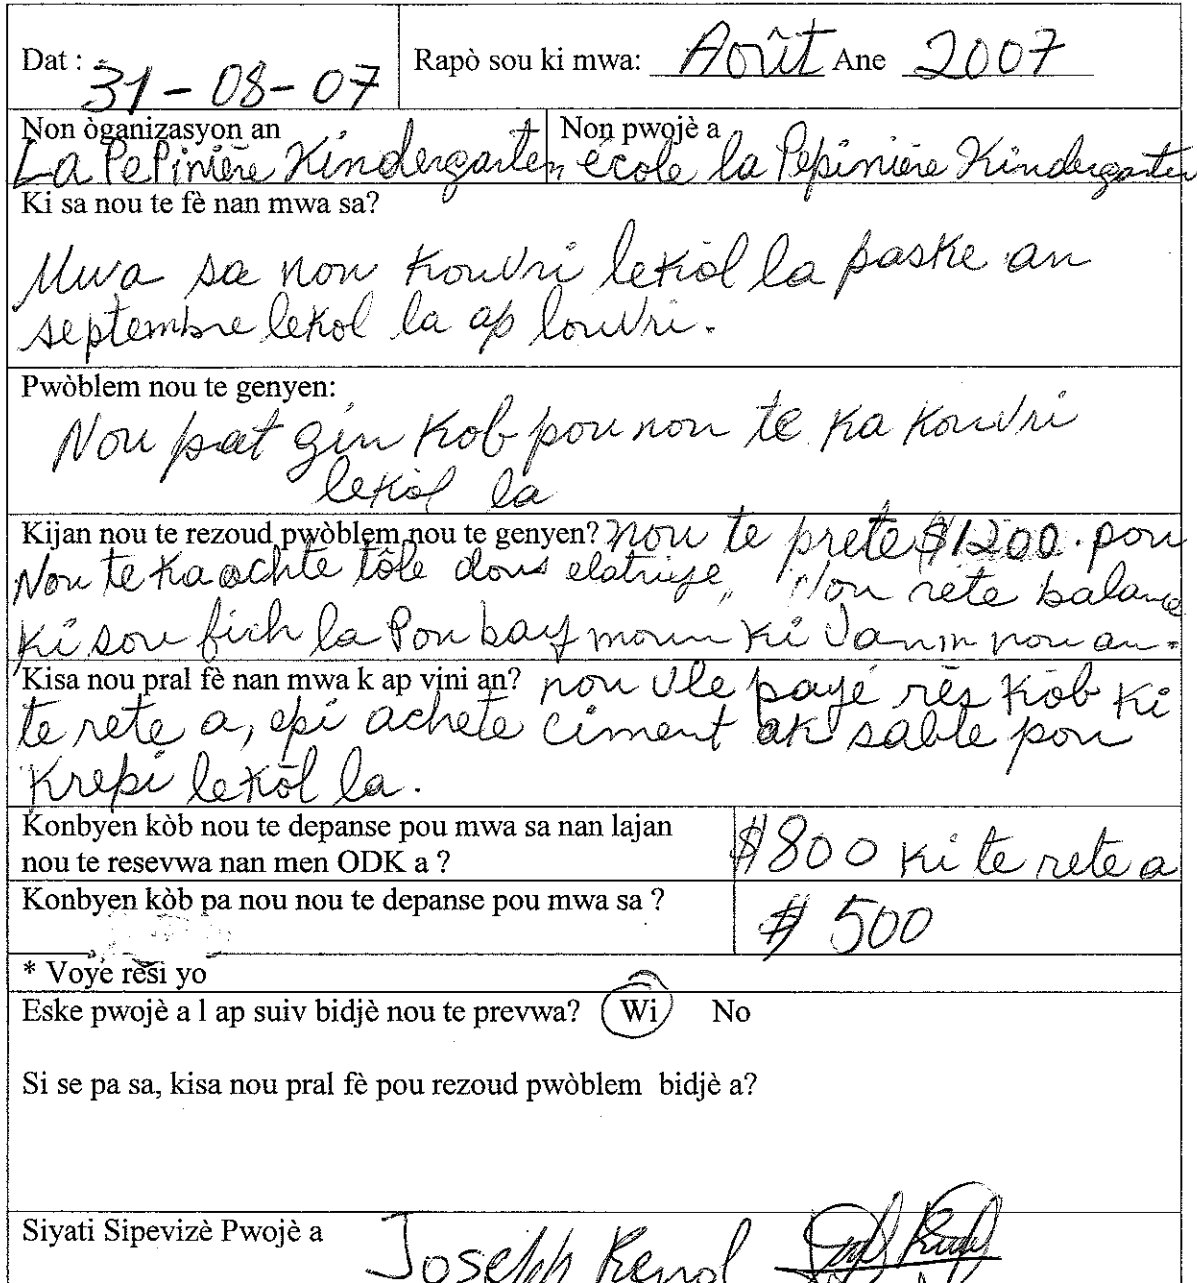 Dat : 31 - 08 - 07
Rapò sou ki mwa: Août Ane 2007
Non òganizasyon an
La PePinière Kindergarten
Non pwojè a
école la Pépinière Kindergarten
Ki sa nou te fè nan mwa sa?
Mwa sa nou kouvri lekòl la paske an
septembre lekol la ap louvri.
Pwòblem nou te genyen:
Nou pat gin kob pou nou te ka kouvri
lekòl la
Kijan nou te rezoud pwòblem nou te genyen? nou te prete $1200. pou
Nou te ka achte tôle dous Nou rete balance
ki sou fich la Pou bay moun ki Vann nou an.
Kisa nou pral fè nan mwa k ap vini an? nou Vle payé rès kòb ki
te rete a, epi achete ciment ak sable pou
Krepi lekòl la.
Konbyen kòb nou te depanse pou mwa sa nan lajan
nou te resevwa nan men ODK a ?
$800 ki te rete a
Konbyen kòb pa nou nou te depanse pou mwa sa ?
$ 500
* Voye resi yo
Eske pwojè a l ap suiv bidjè nou te prevwa? Wi No
Si se pa sa, kisa nou pral fè pou rezoud pwòblem bidjè a?
Siyati Sipevizè Pwojè a Joseph Renol